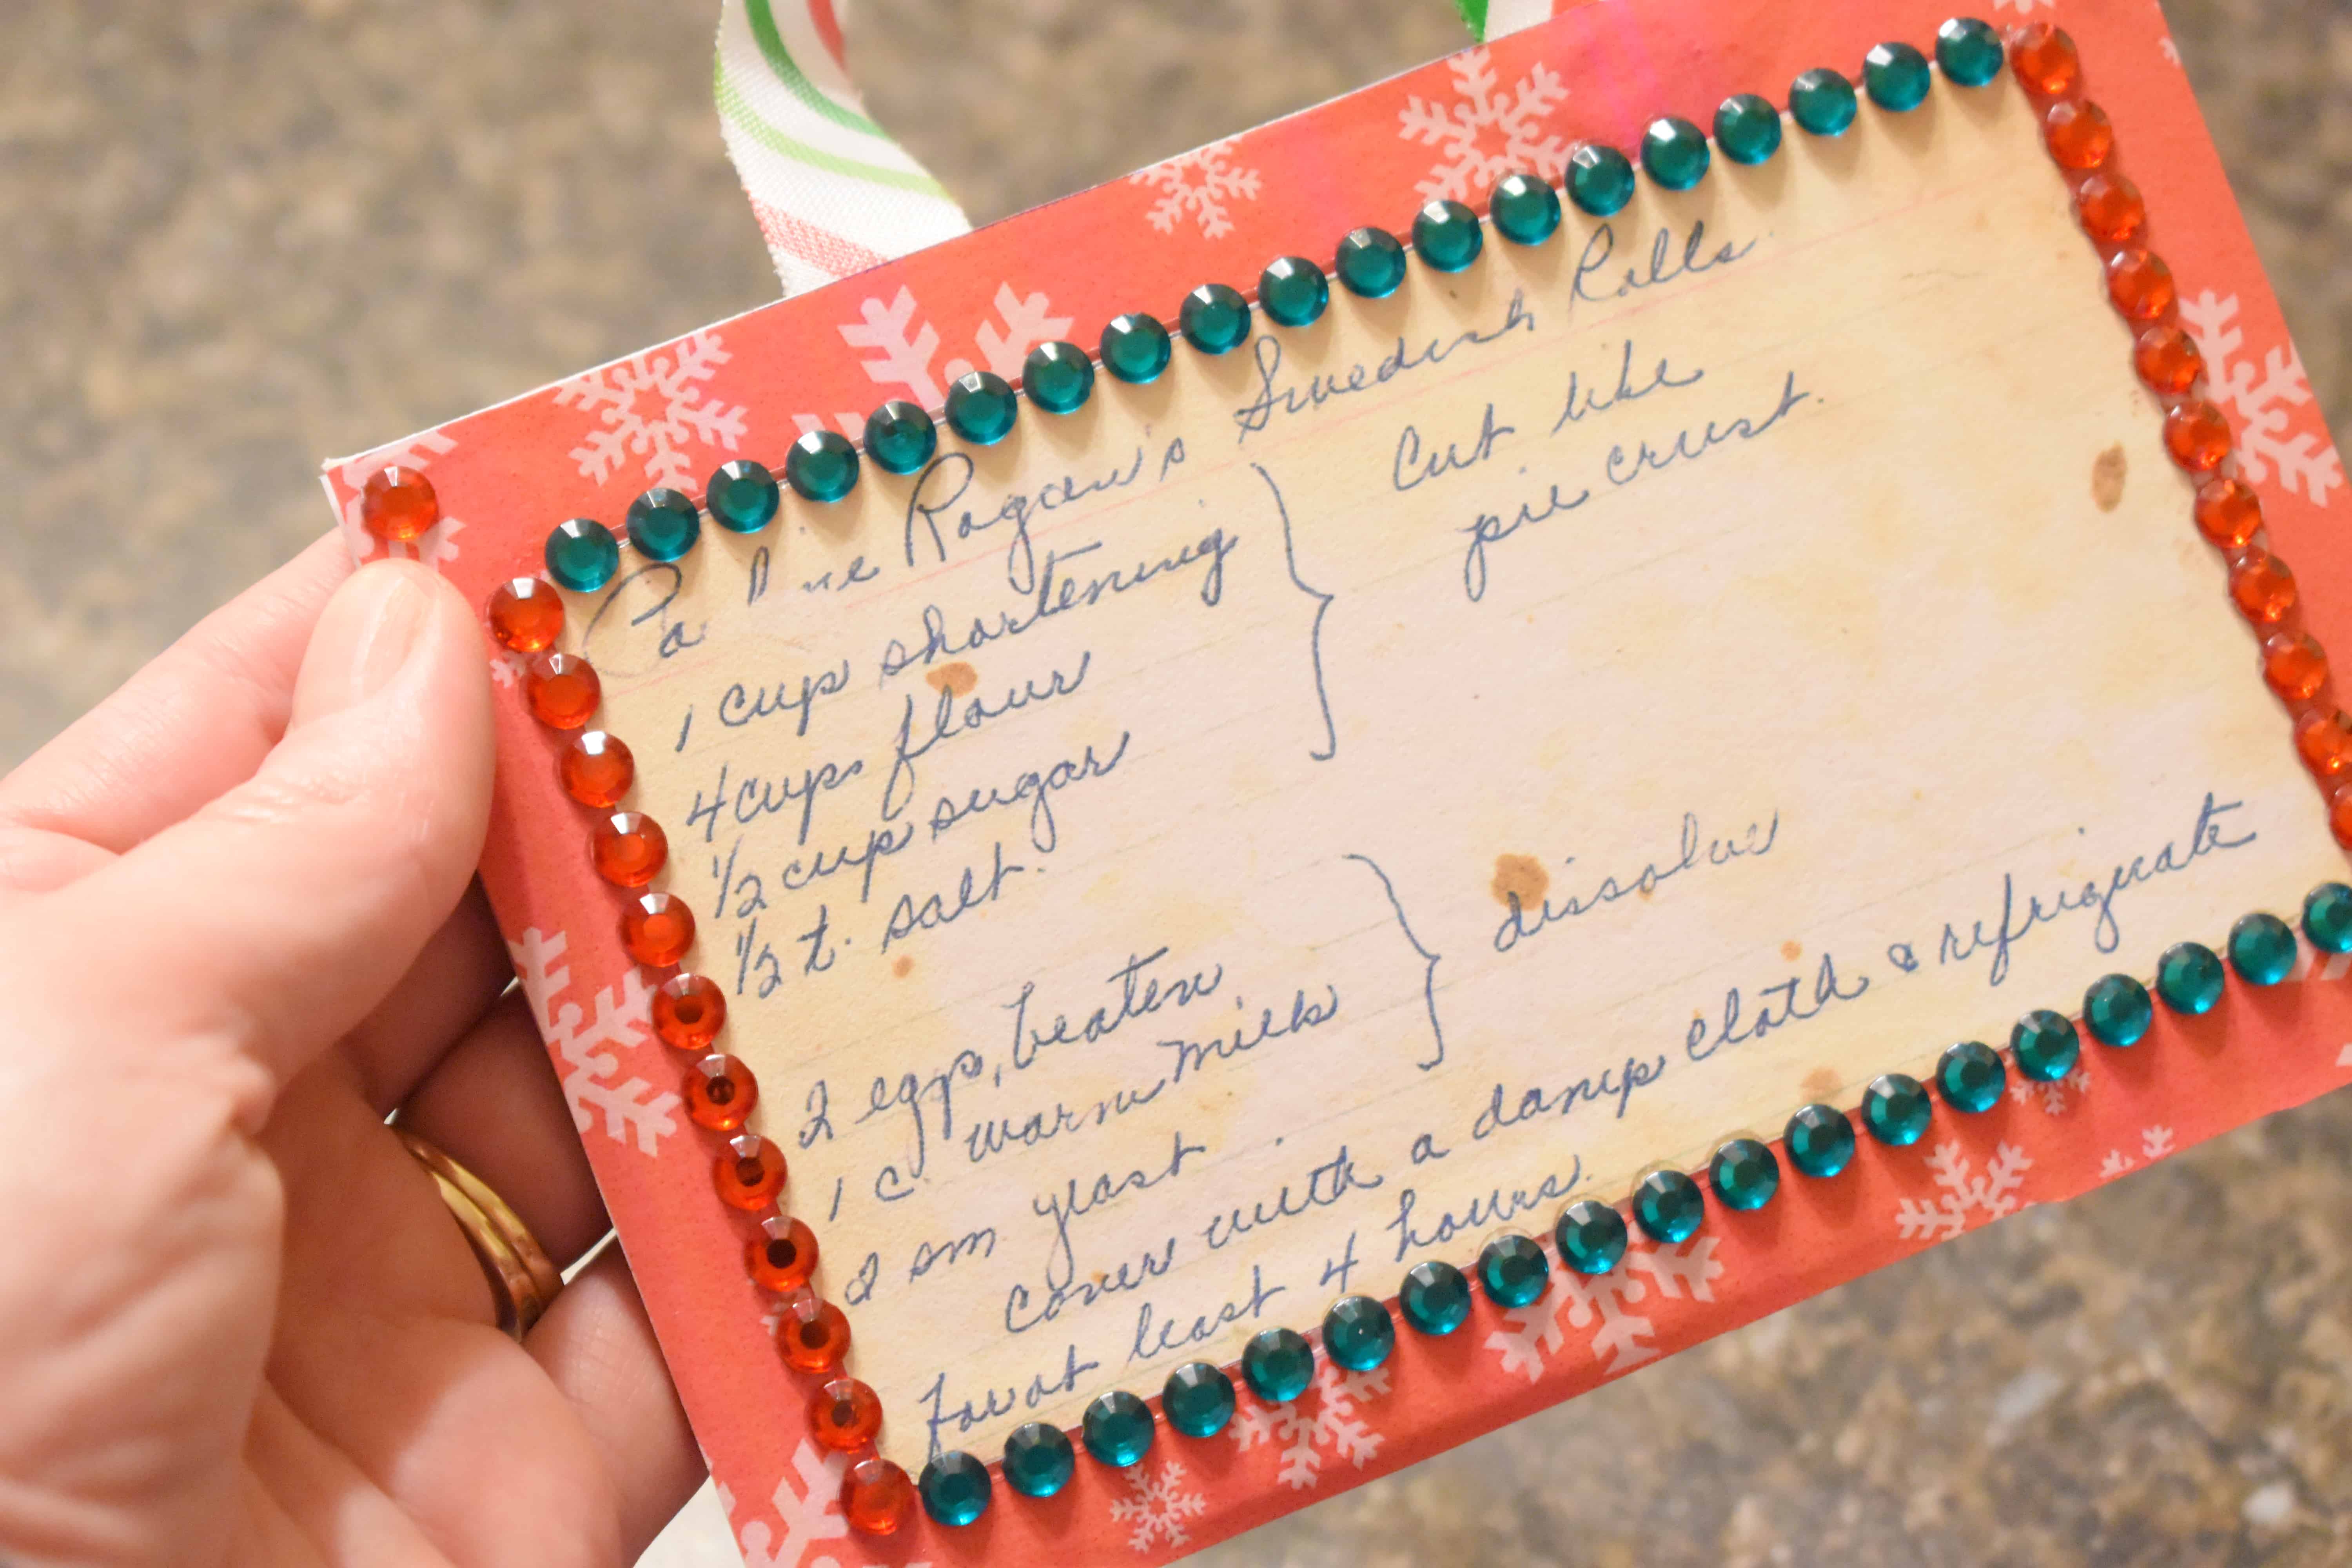 Rogan's Swedish Rolls
1 cup shortening } Cut like
4 cups flour pie crust.
1/2 cup sugar
1/2 t. salt.
2 eggs, beaten } dissolve
1 c. warm milk
2 sm yeast
Cover with a damp cloth & refrigerate
for at least 4 hours.